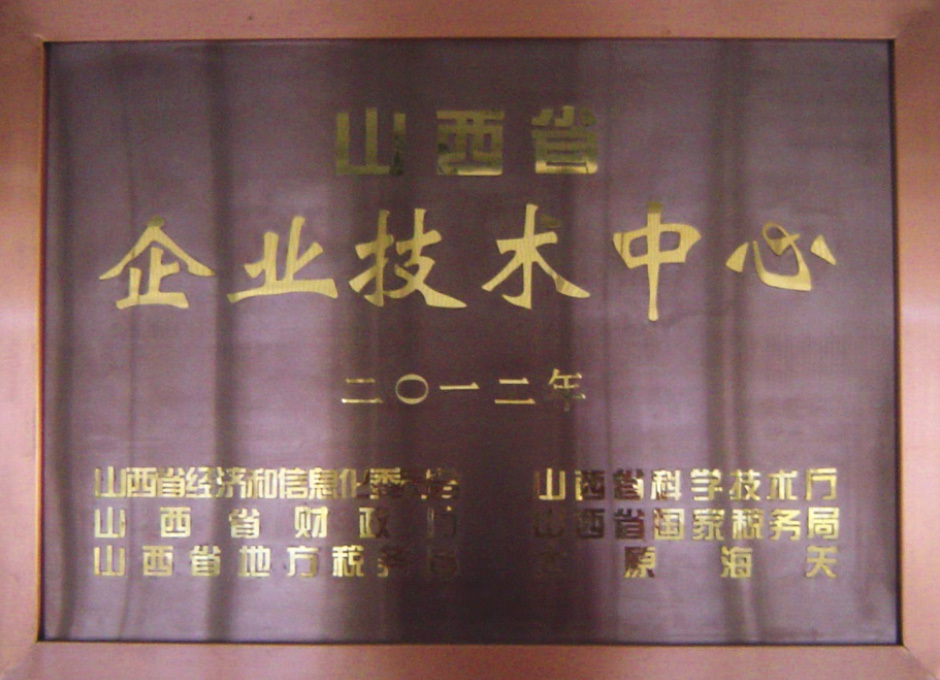 山西省
企业技术中心
二〇一二年
山西省经济和信息化委员会
山西省科学技术厅
山西省财政厅
山西省国家税务局
山西省地方税务局
太原海关